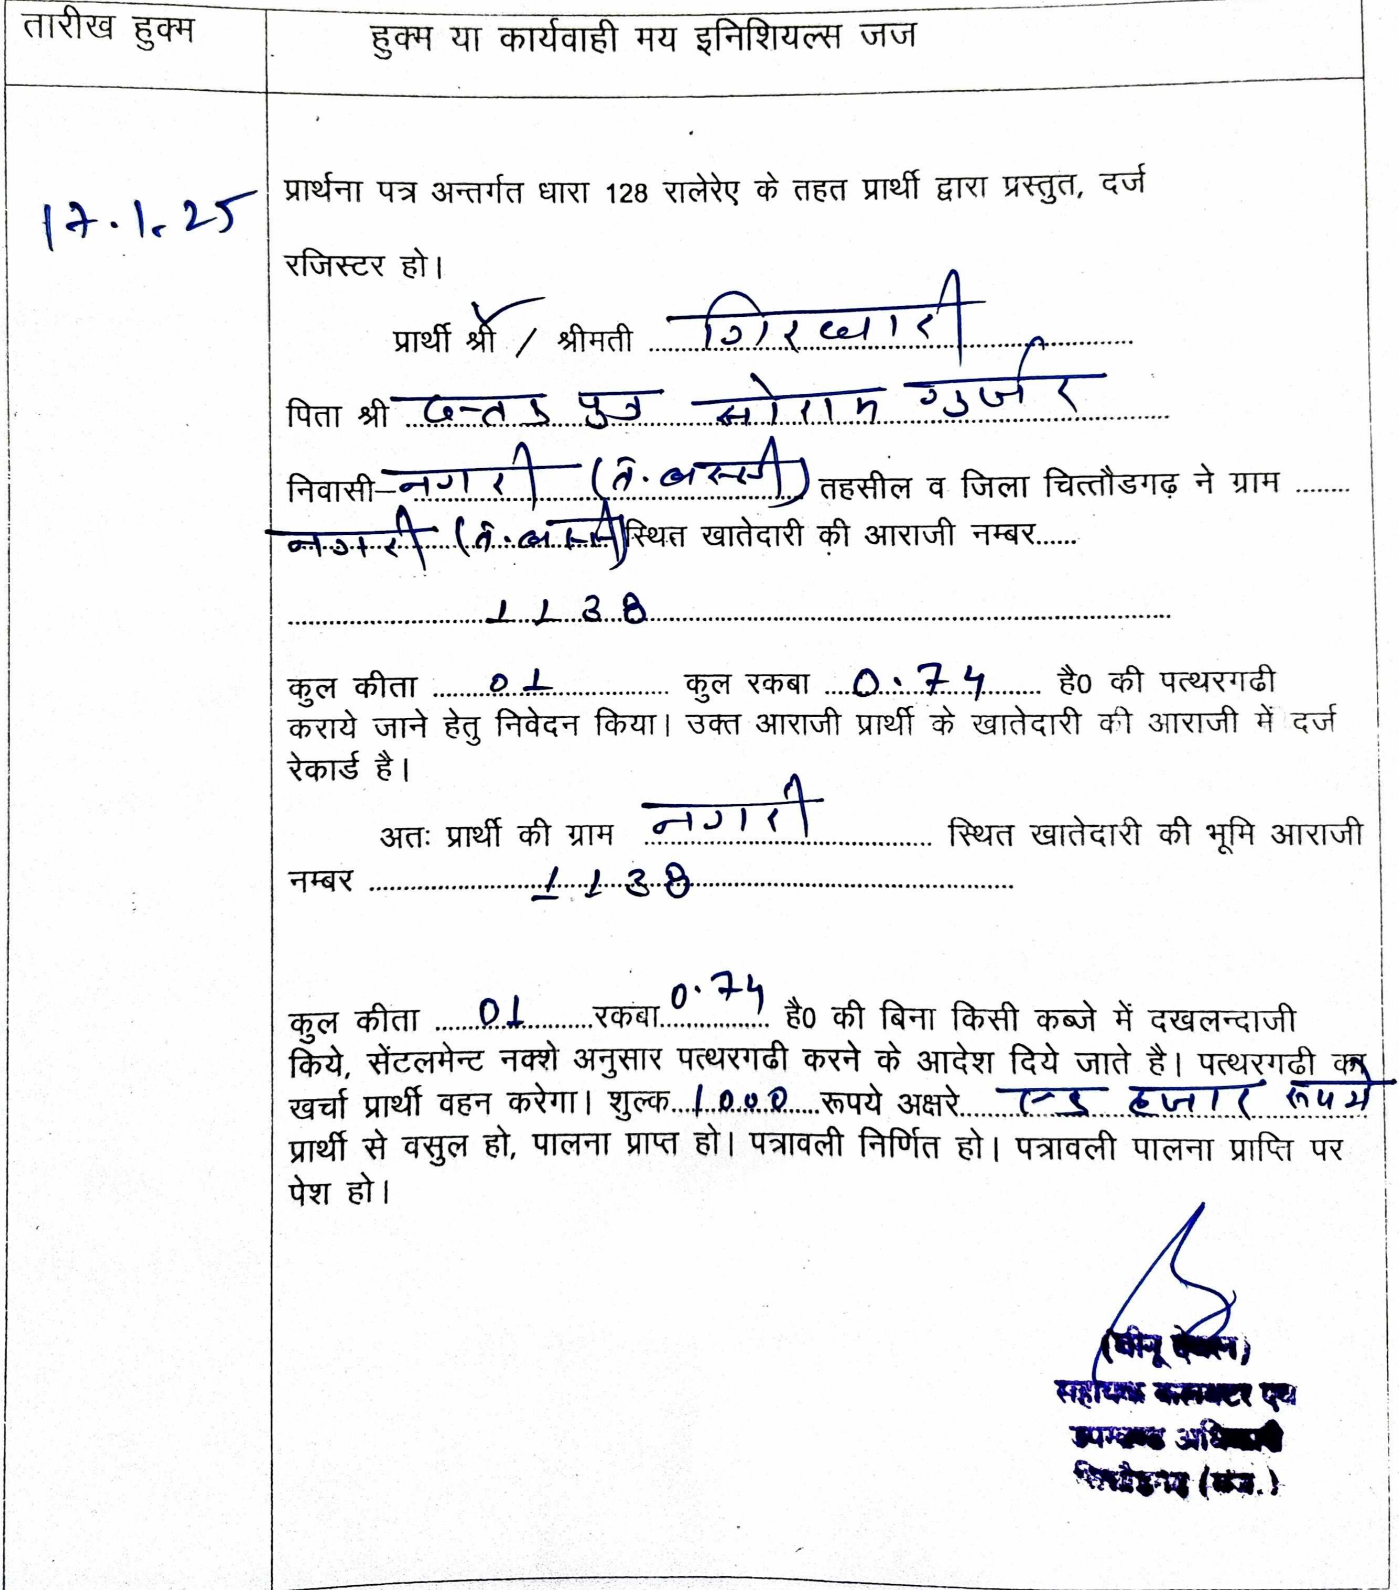 तारीख हुक्म
हुक्म या कार्यवाही मय इनिशियल्स जज
17.1.25
प्रार्थना पत्र अन्तर्गत धारा 128 रालेरेए के तहत प्रार्थी द्वारा प्रस्तुत, दर्ज
रजिस्टर हो।
प्रार्थी श्री / श्रीमती गिरधारी
पिता श्री पुत्र सोराम गुर्जर
निवासी– नगरी (त. बस्सी) तहसील व जिला चित्तौडगढ़ ने ग्राम ........
नगरी (त. बस्सी) स्थित खातेदारी की आराजी नम्बर......
1138
कुल कीता 01 कुल रकबा 0.74 है0 की पत्थरगढी
कराये जाने हेतु निवेदन किया। उक्त आराजी प्रार्थी के खातेदारी की आराजी में दर्ज
रेकार्ड है।
अतः प्रार्थी की ग्राम नगरी स्थित खातेदारी की भूमि आराजी
नम्बर 1138
कुल कीता 01 रकबा 0.74 है0 की बिना किसी कब्जे में दखलन्दाजी
किये, सेंटलमेन्ट नक्शे अनुसार पत्थरगढी करने के आदेश दिये जाते है। पत्थरगढी का
खर्चा प्रार्थी वहन करेगा। शुल्क 1000 रूपये अक्षरे एक हजार रूपये
प्रार्थी से वसुल हो, पालना प्राप्त हो। पत्रावली निर्णित हो। पत्रावली पालना प्राप्ति पर
पेश हो।
सहायक कलक्टर एवं
उपखण्ड अधिकारी
चित्तौडगढ (राज.)